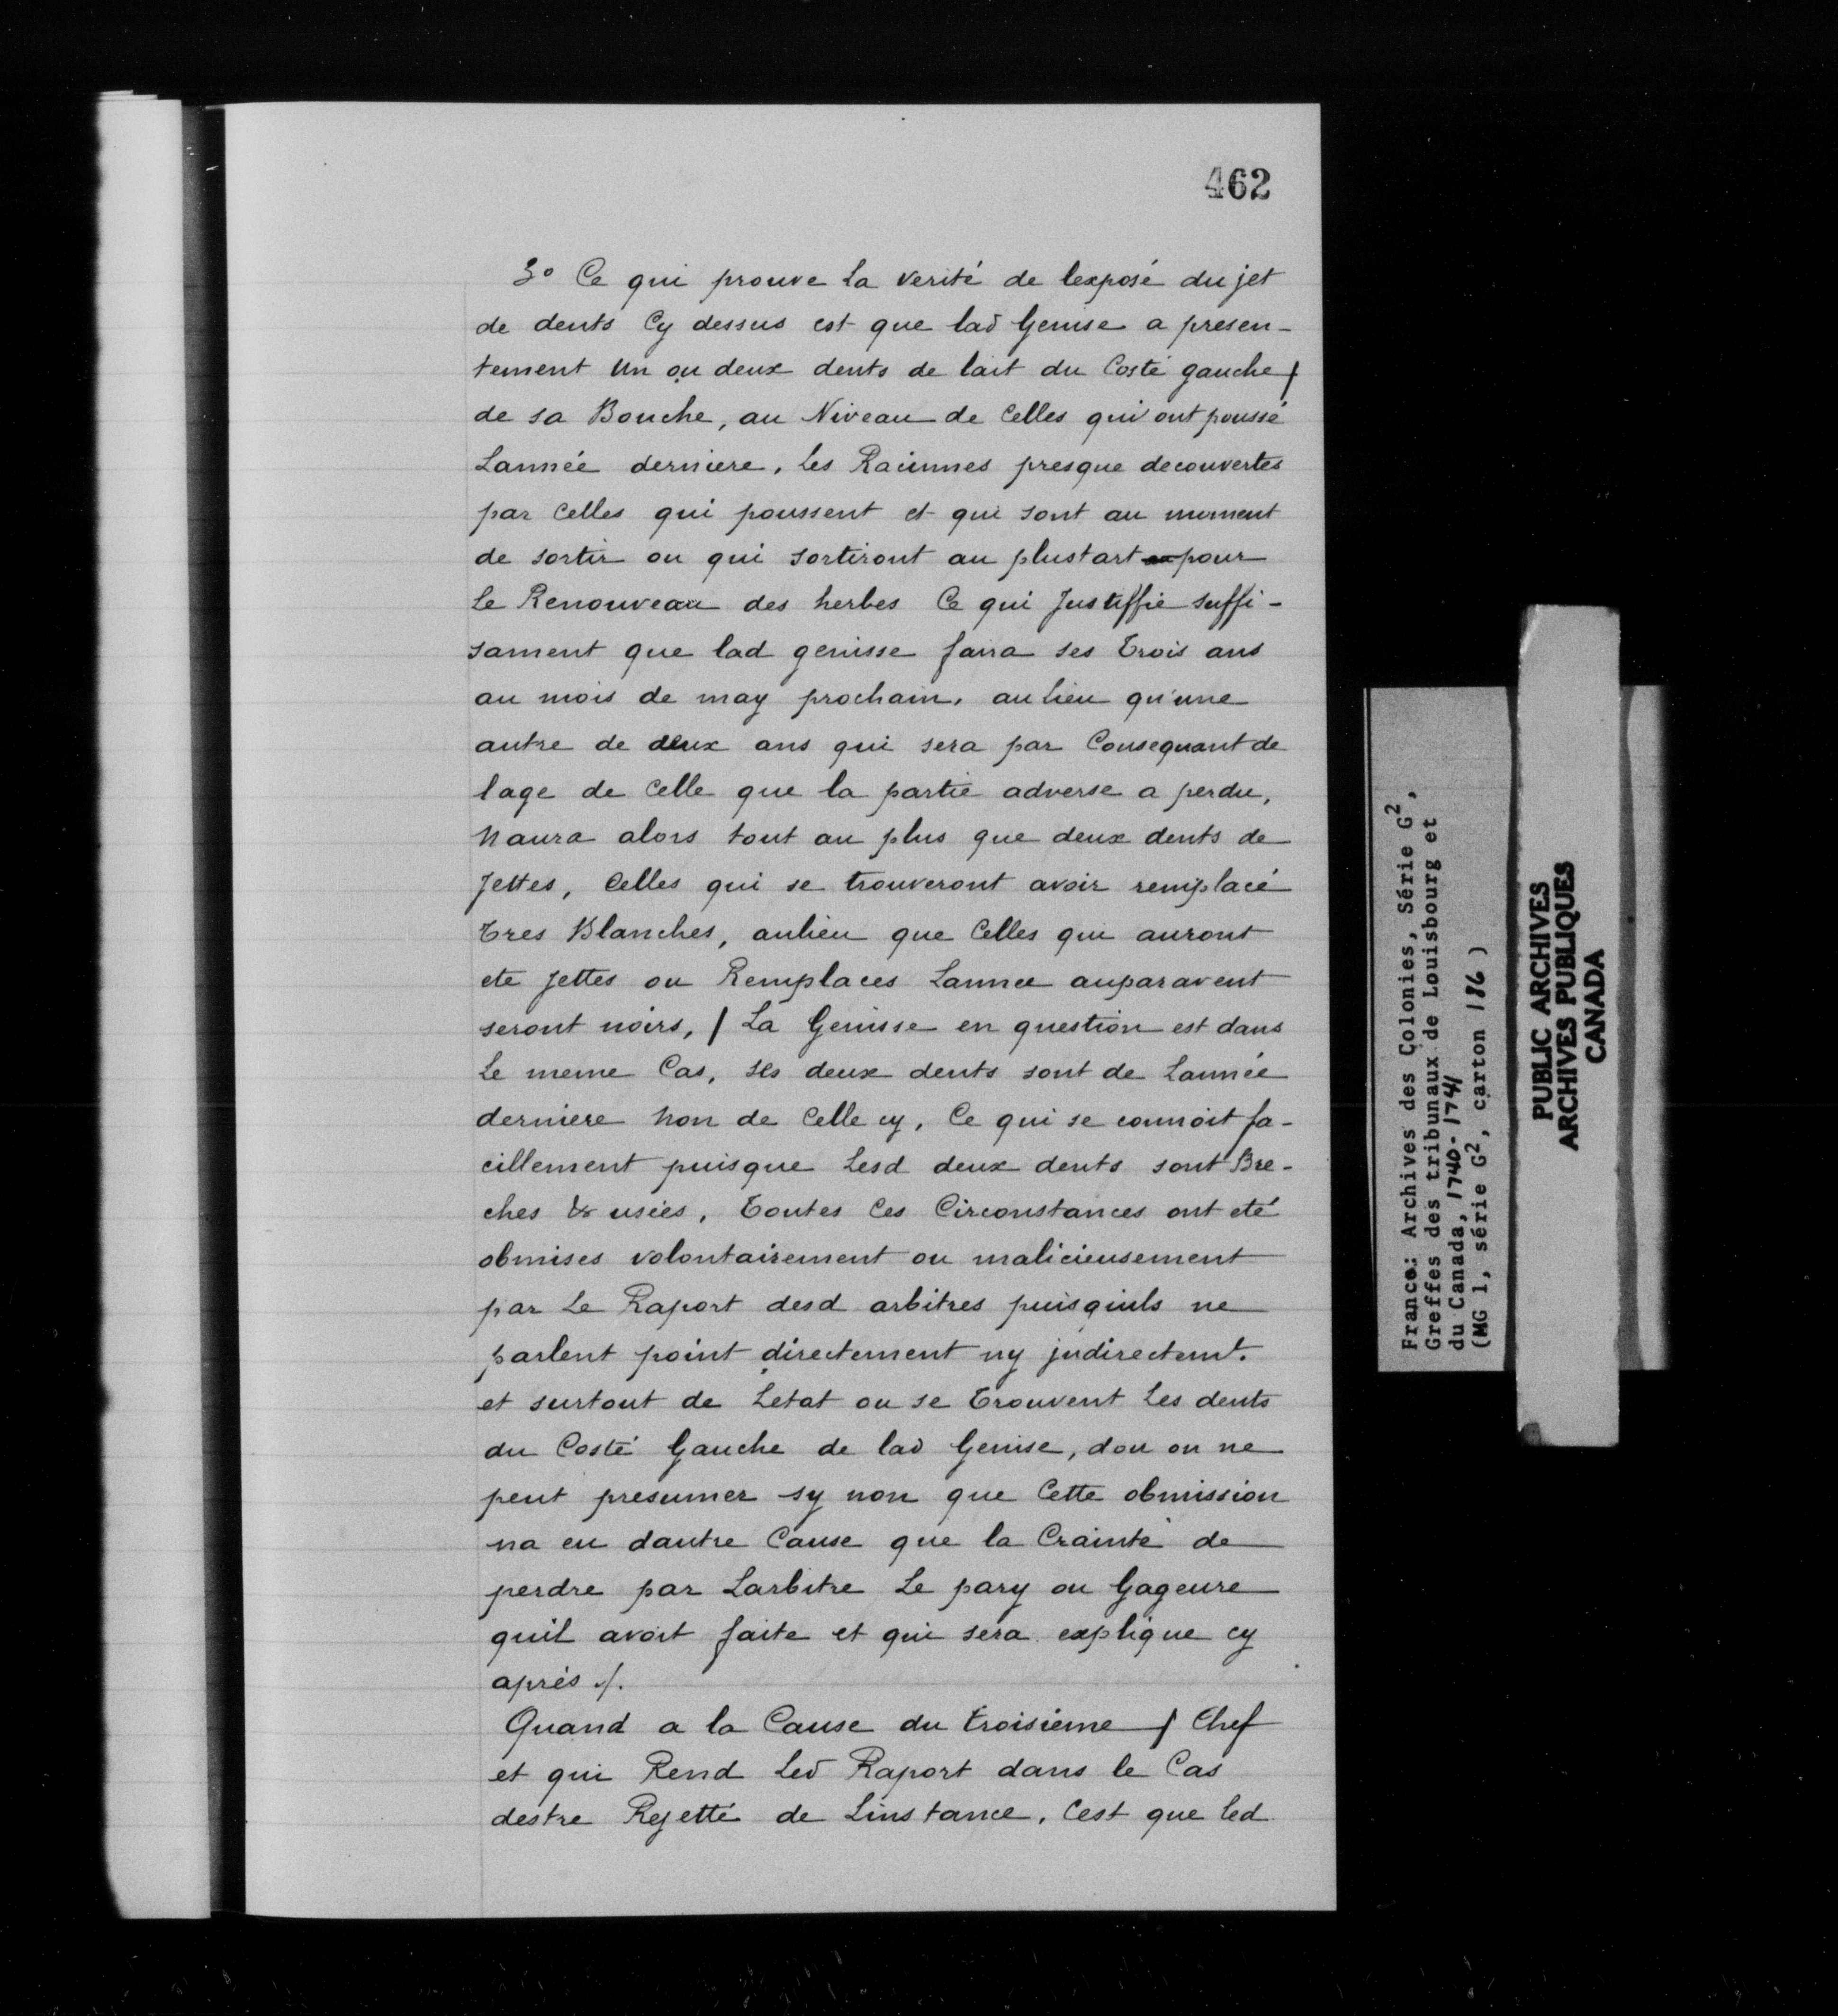 462
3º Ce qui prouve La verité de lexposé du jet
de dents Cy dessus est que lad Genise a presen-
tement un ou deux dents de lait du Costé gauche /
de sa Bouche, au Niveau de Celles qui ont poussé
Lannée derniere, les Raciunes presque decouvertes
par Celles qui poussent et qui sont au moment
de sortir ou qui sortiront au plustart pour
le Renouveau des herbes Ce qui Justiffie suffi-
sament que lad genisse faira ses trois ans
au mois de may prochain, aulieu qu'une
autre de deux ans qui sera par Consequant de
lage de Celle que la partie adverse a perdu,
Naura alors tout au plus que deux dents de
Jettes, Celles qui se trouveront avoir remplacé
tres Blanches, aulieu que Celles qui auront
ete Jettes ou Remplaces Lannee auparavent
seront noirs, / La Genisse en question est dans
Le meme Cas, ses deux dents sont de Lannée
derniere Non de Celle cy, Ce qui se connoit fa-
cillement puisque Lesd deux dents sont Bre-
ches & usées, toutes Ces Circonstances ont eté
obmises volontairement ou malicieusement
par Le Raport desd arbitres puisquils ne
parlent point directement ny jndirectemt.
et surtout de Letat ou se trouvent Les dents
du Costé Gauche de lad Genise, dou on ne
peut presumer sy non que Cette obmission
na eu dautre Cause que la Crainte de
perdre par Larbitre Le pary ou Gageure
quil avoit faite et qui sera explique cy
aprés ./.
Quand a la Cause du troisieme / Chef
et qui Rend Led Raport dans le Cas
destre Rejetté de Linstance, Cest que led
France: Archives des Colonies, Série G²,
Greffes des tribunaux de Louisbourg et
du Canada, 1740-1741
(MG 1, série G², carton 186)
PUBLIC ARCHIVES
ARCHIVES PUBLIQUES
CANADA